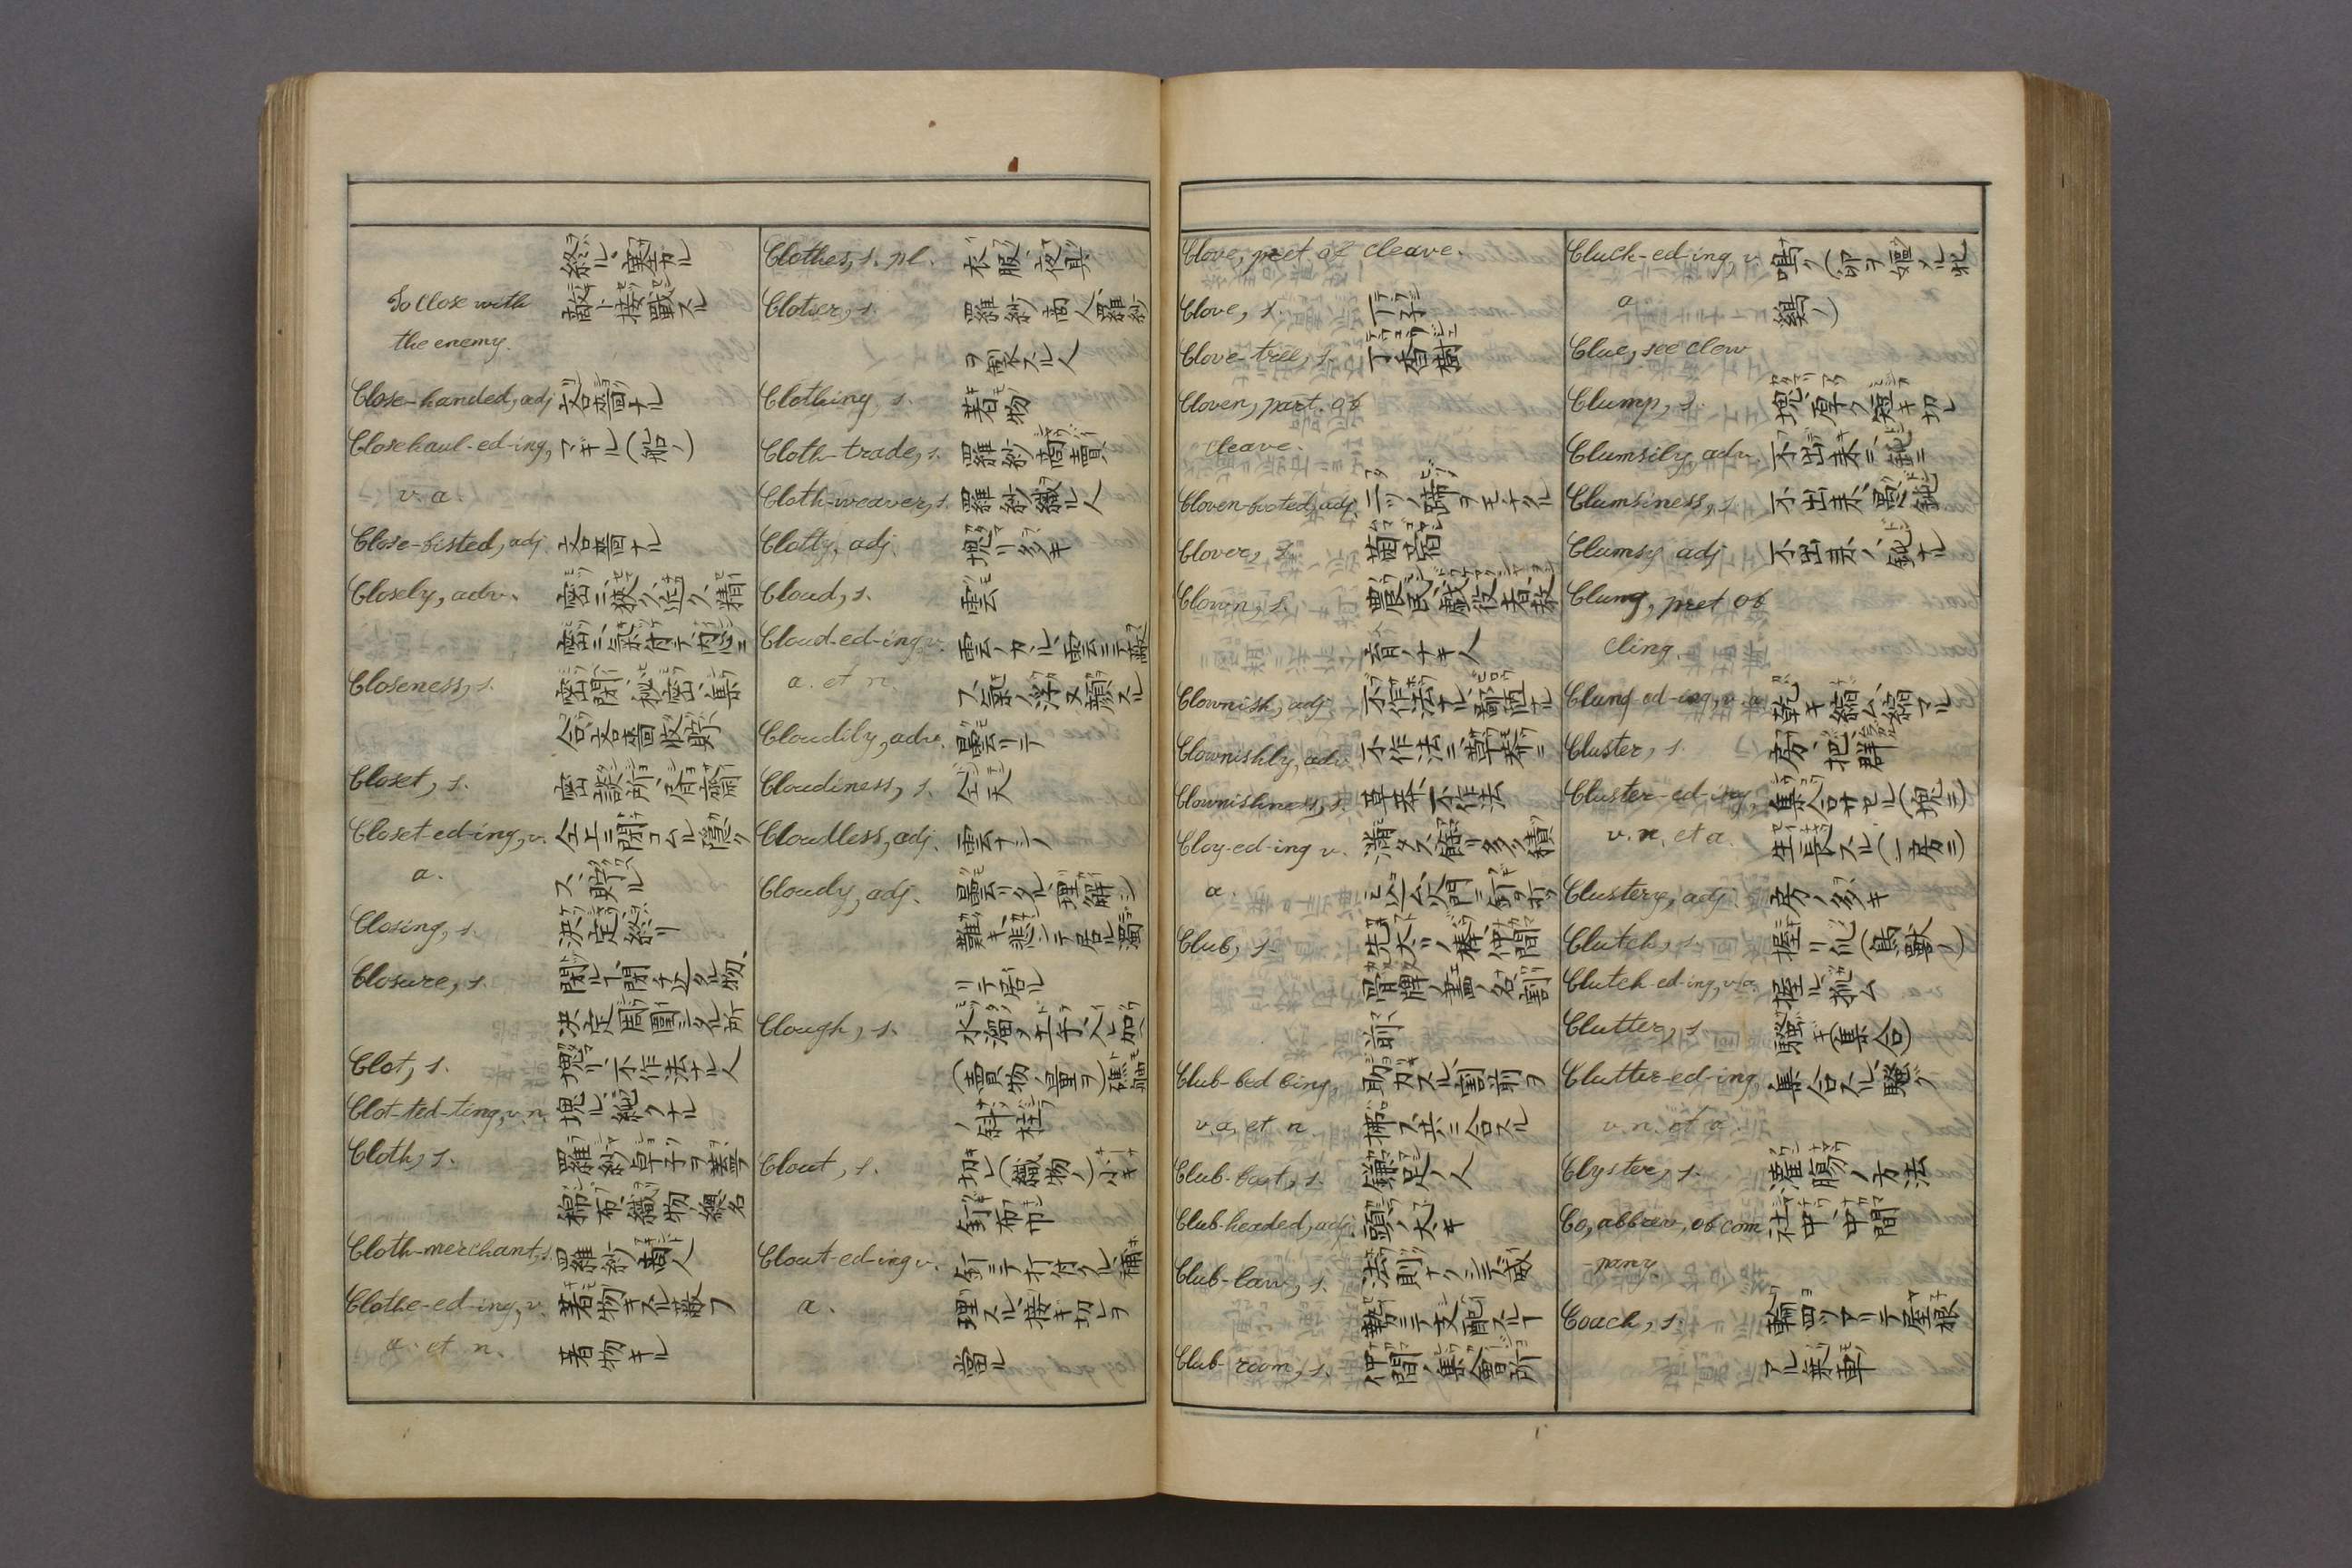 終ル、塞ケル
To close with 敵ト接戰スル
the enemy.
Close-handed, adj 吝嗇ナル
Closehaul-ed-ing, マギル(船ノ)
v. a.
Close-fisted, adj. 吝嗇ナル
Closely, adv. 密ニ、狹ク、近ク、精
密ニ、氣ヲ付テ、內
Closeness, s. 密閉、秘密、集
合、吝嗇、收
Closet, s. 密談所、
Closet-ed-ing, v. 仝上ニ閉コムル、隱ク
a. ス、貯ル
Closing, s. 決定、終リ
Closure, s. 閉ルヿ、閉チ止タル物、
決定、周圍シタル所
Clot, s. 塊リ、不作法ナル人
Clot-ted-ting, v. n. 塊ル、
Cloth, s. 羅紗、卓子ヲ葢フ
綿布、織物ノ總名
Cloth-merchant, s. 羅紗商人
Clothe-ed-ing, v. 著物キスル、蔽フ
a. et n. 著物キル
Clothes, s. pl. 衣服、夜具
Clotier, s. 羅紗商人、羅紗
ヲ製スル人
Clothing, s. 着物
Cloth-trade, s. 羅紗商賣
Cloth-weaver, s. 羅紗織ル人
Clotty, adj. 塊リ多キ
Cloud, s. 雲
Cloud-ed-ing, v. 雲ノカヽル、雲ニテ蔽
a. et n.
Cloudily, adv. 曇リテ
Cloudiness, s. 仝天
Cloudless, adj. 雲ナシノ
Cloudy, adj. 曇リタル、理解シ
難キ、悲シテ居ル、濁
リテ居ル
Clough, s. 水溜ノ土手、
(賣物ノ量ヲ)
ノ斜柱
Clout, s. 切レ(織物ノ)小キ
釘、布巾
Clout-ed-ing v. 釘ニテ打付クル、補
a. 理スル、接キ切レヲ
當ル
Clove, pret of cleave.
Clove, s. 丁子
Clove-tree, s. 丁香樹
Cloven, part. of
cleave.
Cloven-footed, adj. 二ツノ蹄ヲモチタル
Clover, s. 苜蓿
Clown, s. 農民、戱役者、敎
育ノナキ人
Clownish, adj. 不作法ナル、鄙陋ナル
Clownishly, adv. 不作法ニ、草莽ニ
Clownishness, s. 草莽、不作法
Cloy-ed-ing v. 滿タス、餘リ多ク積
a.
Club, s. 先太ノ棒、仲間
骨牌ノ畫ノ名、割
前
Club-bed bing, 助力スル、割前ヲ
v. a. et n. 拂フ、共ニ合スル
Club-foot, s. 鎌足ノ人
Club-headed, adj. 頭ノ大キ
Club-law, s. 法則ナクシテ威
勢ニテ支配スルヿ
Club-room, s. 仲間ノ集會所
Cluck-ed-ing, v. 鳴ク(卵ヲ
a 鷄ノ)
Clue, see clew
Clump, s. 塊、厚ク短キ切レ
Clumsily, adv. 不出來ニ、鈍ニ
Clumsiness, s. 不出來、愚鈍
Clumsy adj 不出來ノ、鈍ナル
Clung, pret of
cling.
Clung ed-ing, v. a 乾キ縮ム、縮マル
Cluster, s. 房、把、群
Cluster-ed-ing, 集合サセル(塊ニ)
v. n. et a. 生長スル(一房ニ)
Clustery, adj 房ノ多キ
Clutch, s. 握リ、爪(鳥獸ノ)
Clutch ed-ing, v. a. 握ル、抓ム
Clutter, s. 騷キ(集合)
Clutter-ed-ing, 集合スル、騷グ
v. n. et a
Clyster, s. 灌腸ノ方法
Co, abbrev, of com 社中、中間
-pany.
Coach, s. 輪四ツアリテ屋根
アル乘車